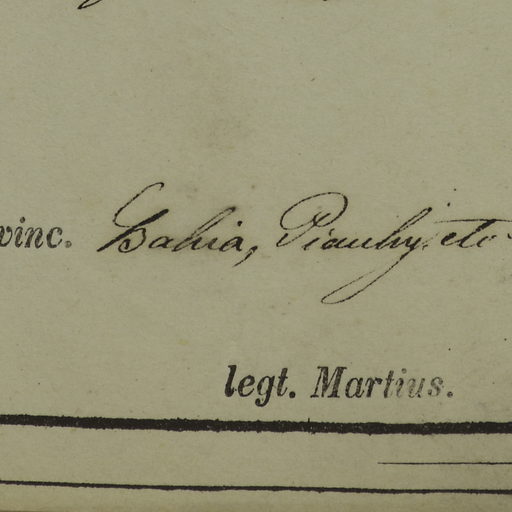 vinc. Bahia, Piauhy, etc
legt. Martius.